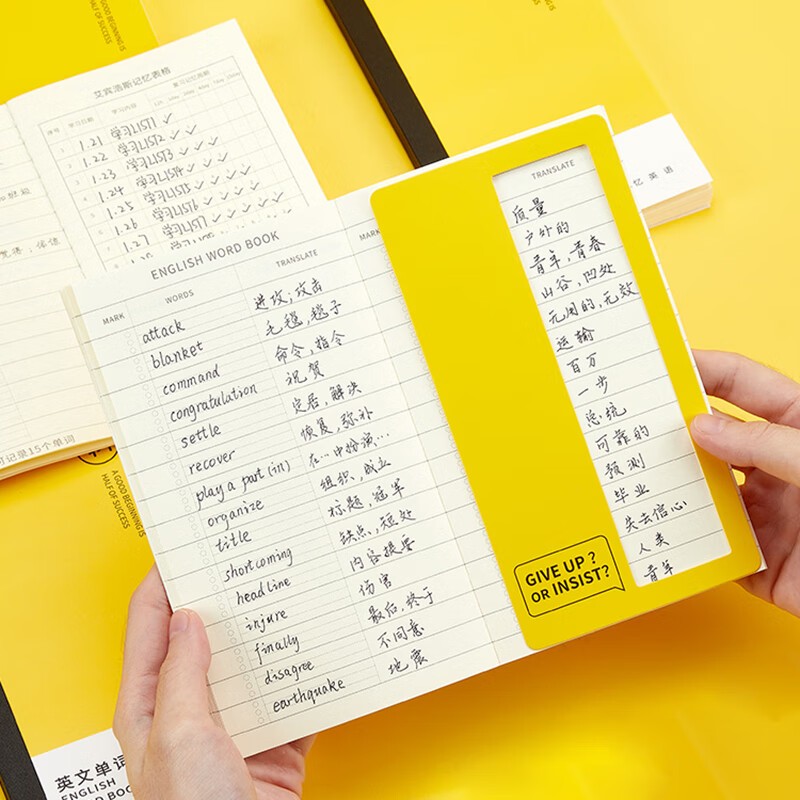 A GOOD BEGINNING IS
HALF OF SUCCESS
艾宾浩斯记忆表格
序号 学习日期 学习内容 复习记忆周期
1 1.21 学习LIST1 ✓ ✓
2 1.22 学习LIST2 ✓ ✓
3 1.23 学习LIST3 ✓ ✓ ✓
1.24 学习LIST4 ✓ ✓ ✓
1.25 学习LIST5 ✓ ✓ ✓ ✓
1.26 学习LIST6 ✓ ✓ ✓ ✓
1.27 学习LIST7 ✓ ✓ ✓ ✓
1.28
记录15个单词
A GOOD BEGINNING IS
HALF OF SUCCESS
忆英语
ENGLISH WORD BOOK
MARK WORDS TRANSLATE
attack 进攻;攻击
blanket 毛毯,毯子
command 命令,指令
congratulation 祝贺
settle 定居,解决
recover 恢复,弥补
play a part (in) 在…中扮演…
organize 组织,成立
title 标题,冠军
shortcoming 缺点,短处
headline 内容提要
injure 伤害
finally 最后,终于
disagree 不同意
earthquake 地震
MARK
TRANSLATE
质量
户外的
青年,青春
山谷,凹处
无用的,无效
运输
百万
一步
总统
可靠的
预测
毕业
失去信心
人类
青年
GIVE UP ?
OR INSIST?
英文单词
ENGLISH
WORD BOOK